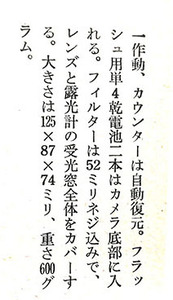 一作動、カウンターは自動復元。フラッ
シュ用単4乾電池二本はカメラ底部に入
れる。フィルターは52ミリネジ込みで、
レンズと露光計の受光窓全体をカバーす
る。大きさは125×87×74ミリ、重さ600グ
ラム。